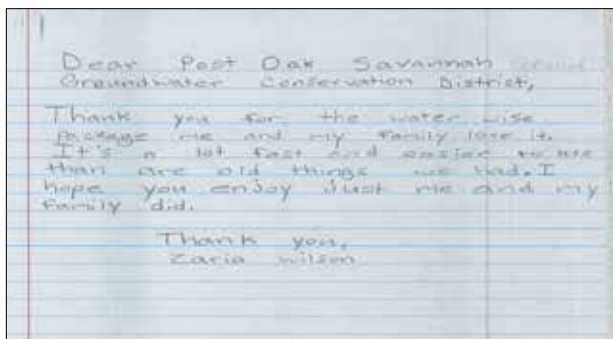 Dear Post Oak Savannah
Groundwater Conservation District,
Thank you for the water wise
package me and my family love it.
It's a lot fast and easier to use
than are old things we had. I
hope you enjoy Just me and my
family did.
Thank you,
Zaria Wilson